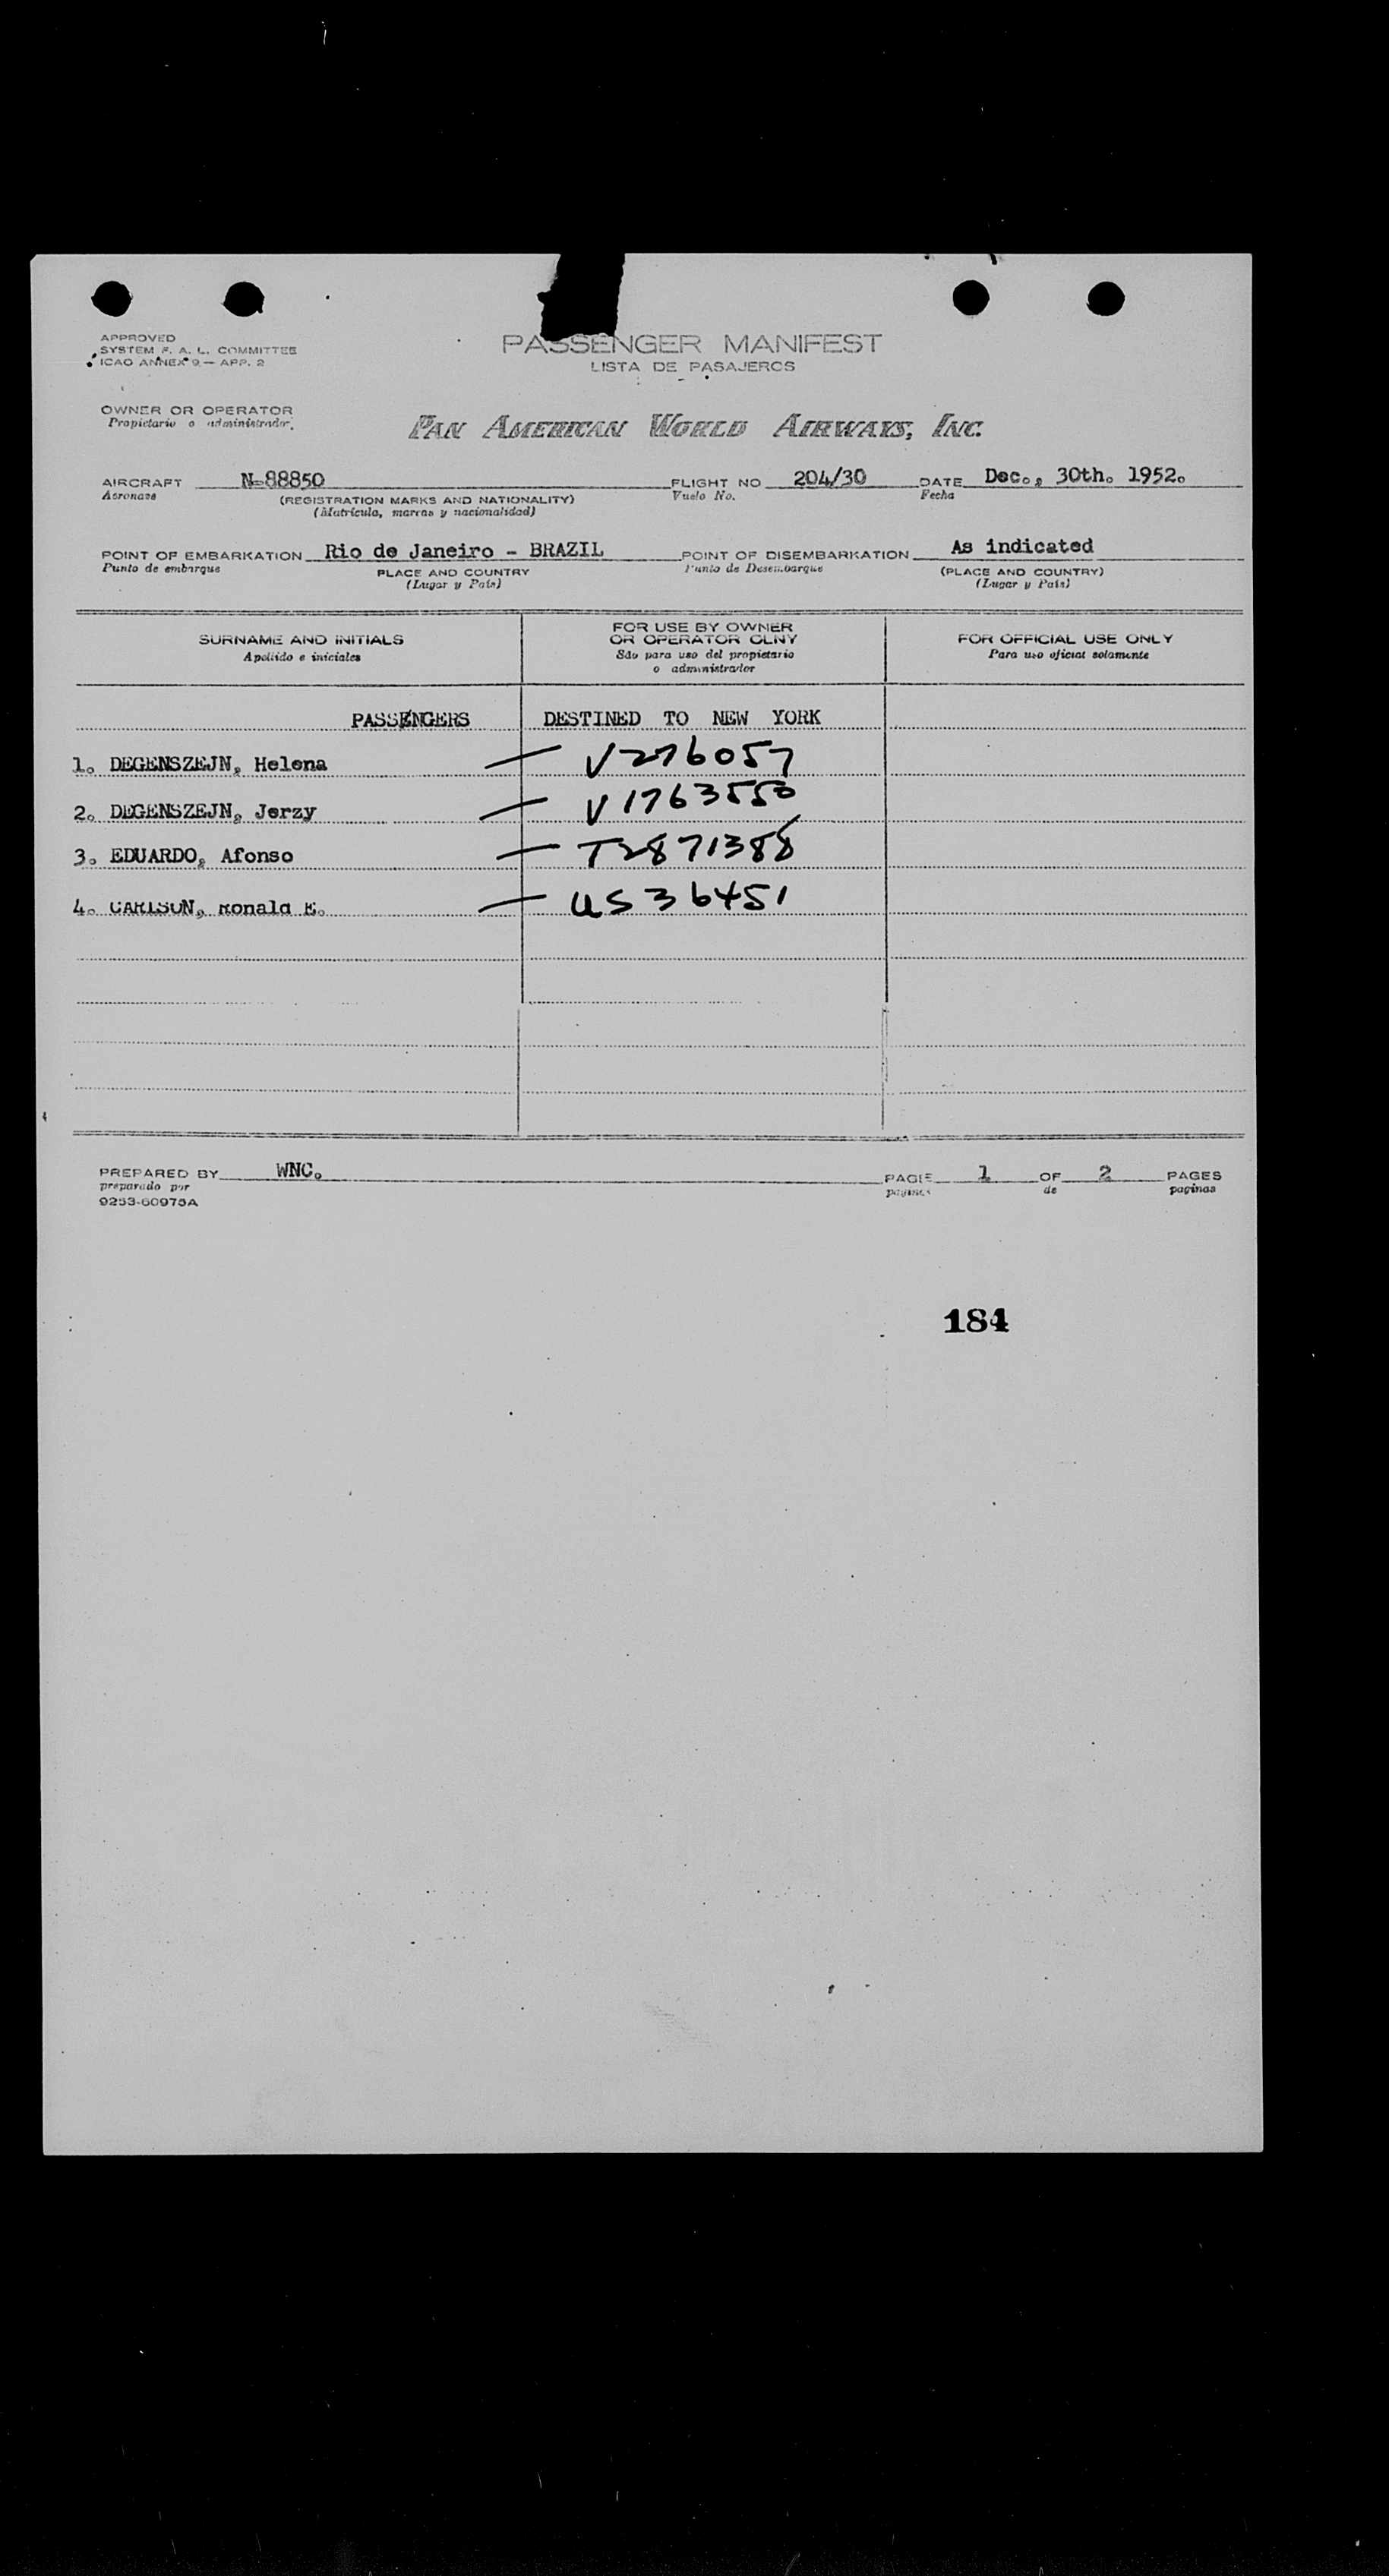 APPROVED
SYSTEM F. A. L. COMMITTEE
ICAO ANNEX 9 — APP. 2
PASSENGER MANIFEST
LISTA DE PASAJEROS
OWNER OR OPERATOR
Propietario o administrador.
PAN AMERICAN WORLD AIRWAYS, INC.
AIRCRAFT N-88850 FLIGHT NO 204/30 DATE Dec., 30th. 1952.
Aeronave (REGISTRATION MARKS AND NATIONALITY) Vuelo No. Fecha
(Matrícula, marcas y nacionalidad)
POINT OF EMBARKATION Rio de Janeiro - BRAZIL POINT OF DISEMBARKATION As indicated
Punto de embarque PLACE AND COUNTRY Punto de Desembarque (PLACE AND COUNTRY)
(Lugar y País) (Lugar y País)
SURNAME AND INITIALS FOR USE BY OWNER OR OPERATOR ONLY FOR OFFICIAL USE ONLY
Apellido e iniciales Sólo para uso del propietario o administrador Para uso oficial solamente
PASSENGERS DESTINED TO NEW YORK
1. DEGENSZEJN, Helena — V276057
2. DEGENSZEJN, Jerzy — V1763550
3. EDUARDO, Afonso — T2871388
4. CARLSON, Ronald E. — US36451
PREPARED BY WNC. PAGE 1 OF 2 PAGES
preparado por paginas de paginas
9253-60975A
184